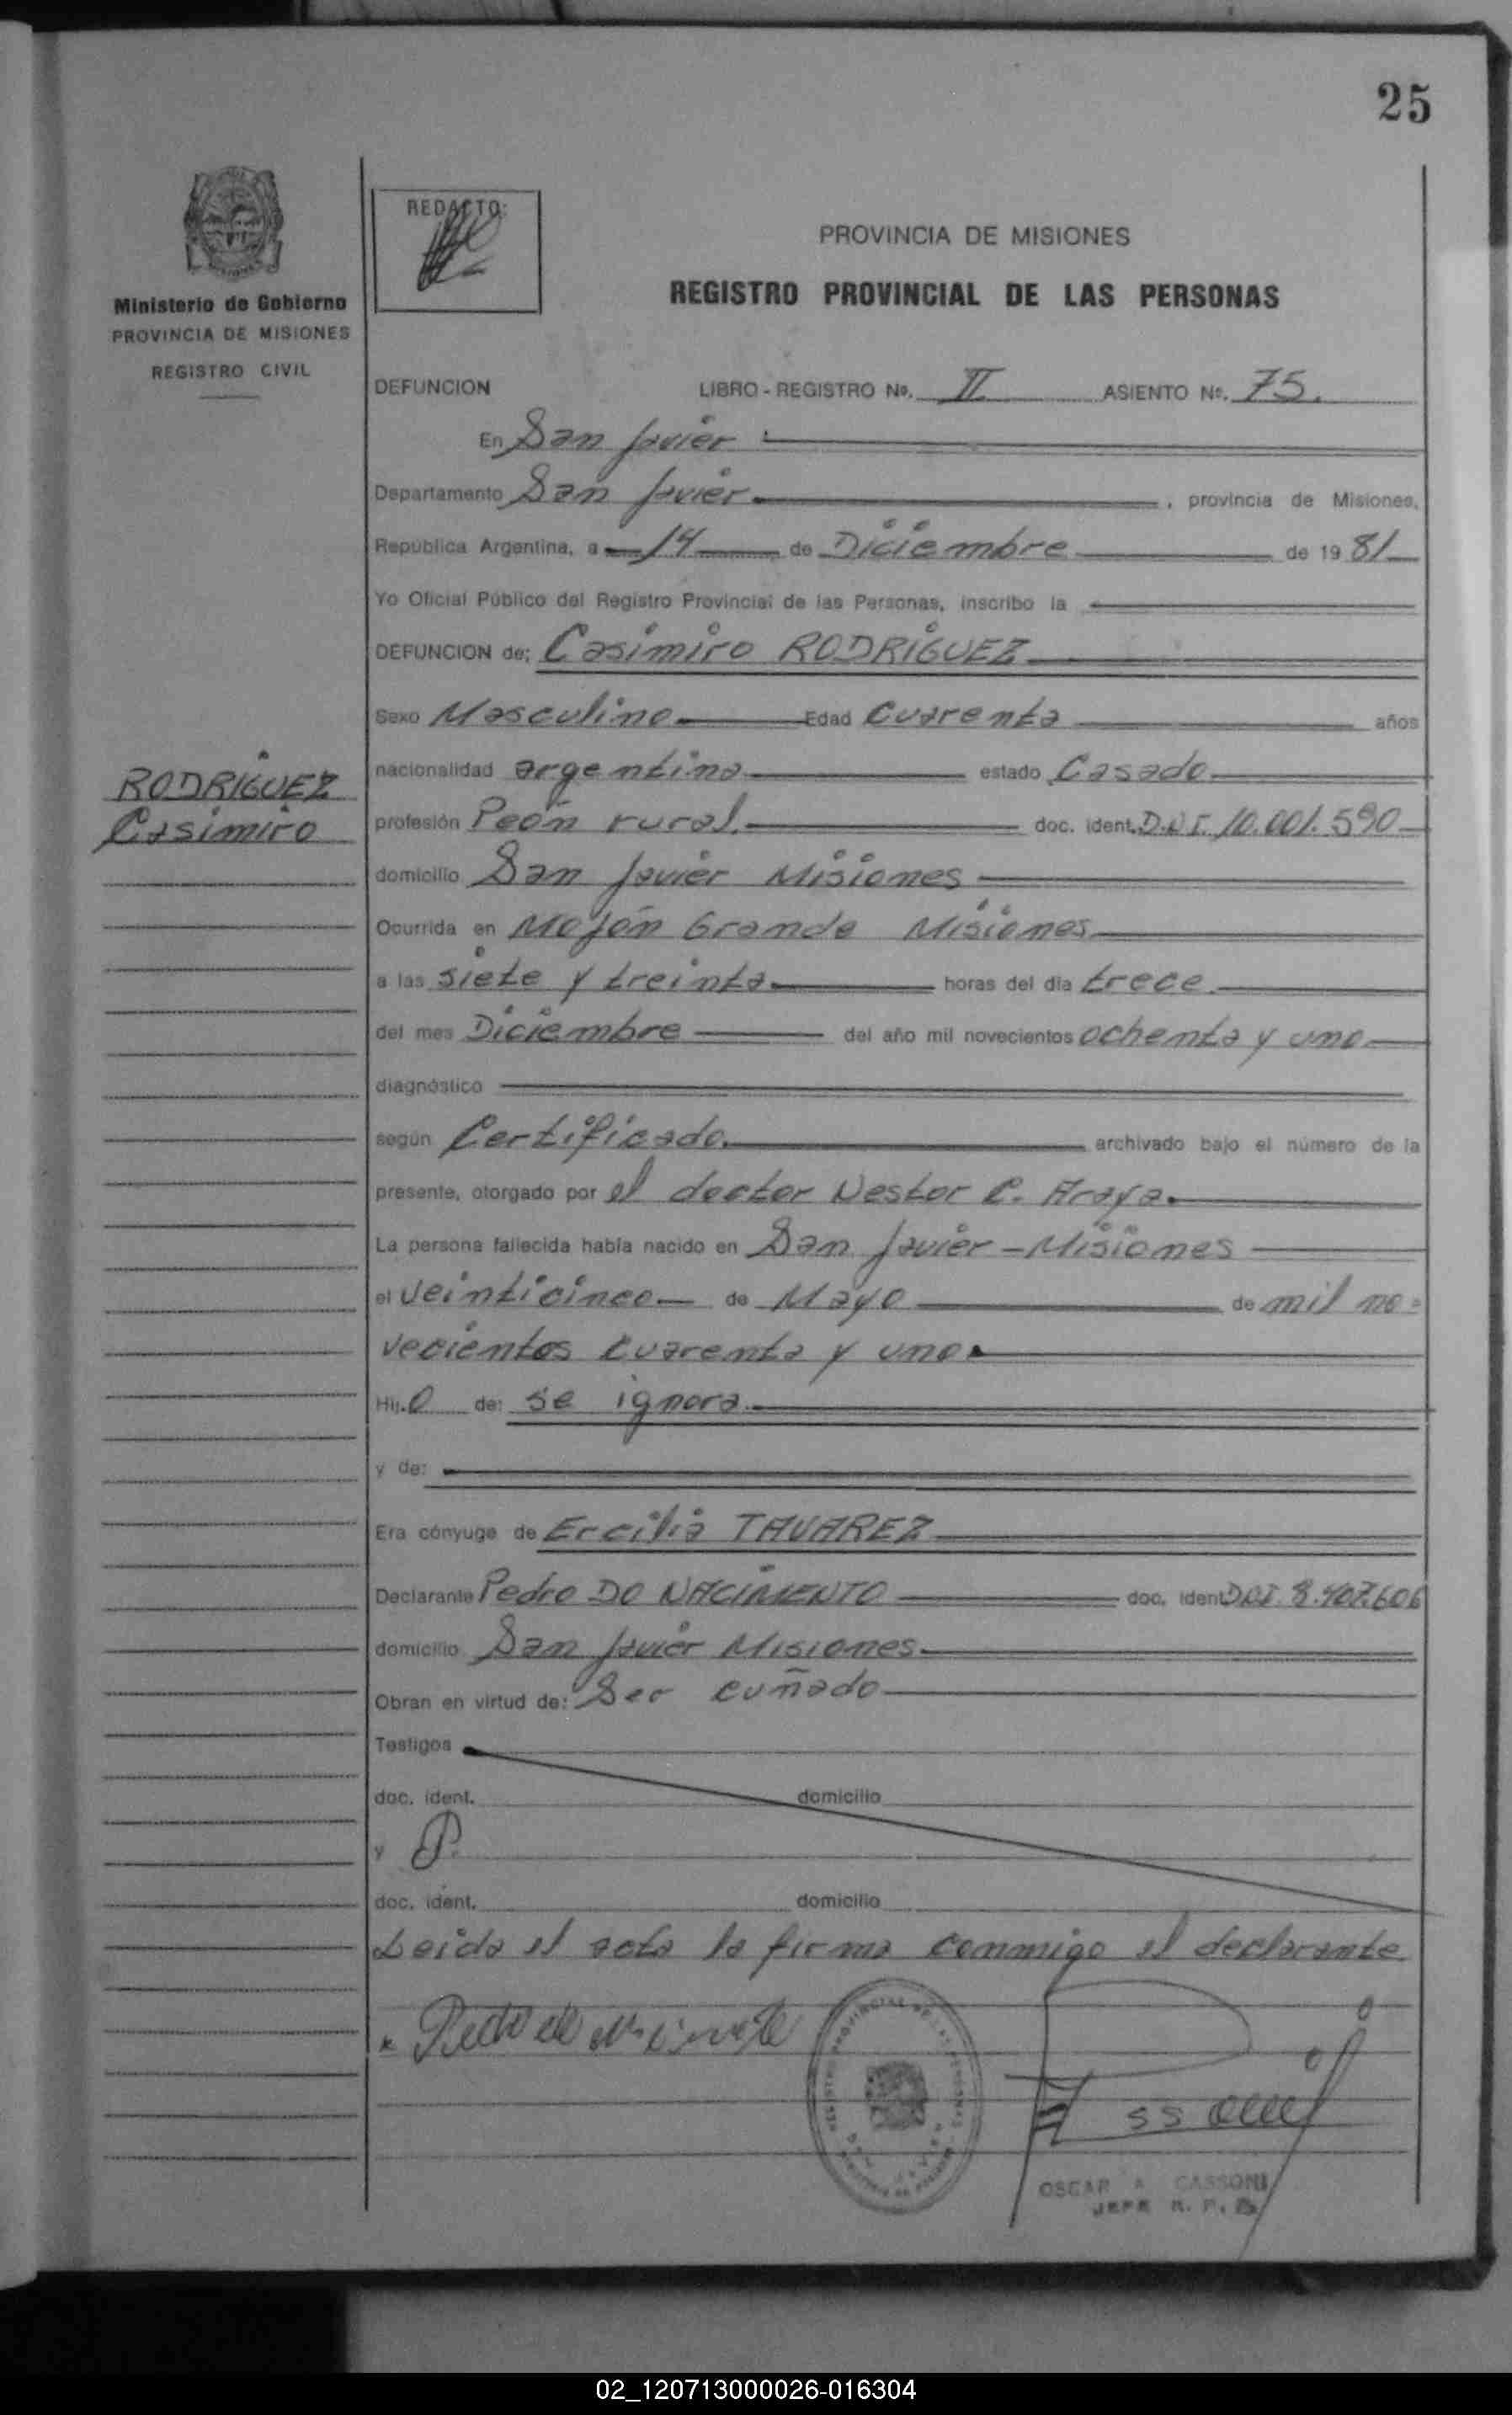 25
REDACTO:
PROVINCIA DE MISIONES
REGISTRO PROVINCIAL DE LAS PERSONAS
Ministerio de Gobierno
PROVINCIA DE MISIONES
REGISTRO CIVIL
DEFUNCION LIBRO - REGISTRO No. II ASIENTO No. 75.
En San Javier
Departamento San Javier , provincia de Misiones,
República Argentina, a 14 de Diciembre de 19 81
Yo Oficial Público del Registro Provincial de las Personas, inscribo la
DEFUNCION de: Casimiro RODRIGUEZ
Sexo Masculino Edad Cuarenta años
RODRIGUEZ
Casimiro
nacionalidad argentina estado Casado
profesión Peón rural. doc. ident. D.N.I. 10.001.590
domicilio San Javier Misiones
Ocurrida en Mojón Grande Misiones
a las siete y treinta horas del día trece
del mes Diciembre del año mil novecientos ochenta y uno
diagnóstico
según Certificado. archivado bajo el número de la
presente, otorgado por el doctor Nestor C. Araya.
La persona fallecida había nacido en San Javier - Misiones
el veinticinco de Mayo de mil no-
vecientos cuarenta y uno
Hij.o de: se ignora
y de:
Era cónyuge de Ercilia TAVAREZ
Declarante Pedro DO NACIMENTO doc. ident. D.N.I. 8.407.606
domicilio San Javier Misiones
Obran en virtud de: Ser cuñado
Testigos
doc. ident. domicilio
y
doc. ident. domicilio
Leida el acta la firma conmigo el declarante
OSCAR A CASSONI
JEFE R. P.
02_120713000026-016304